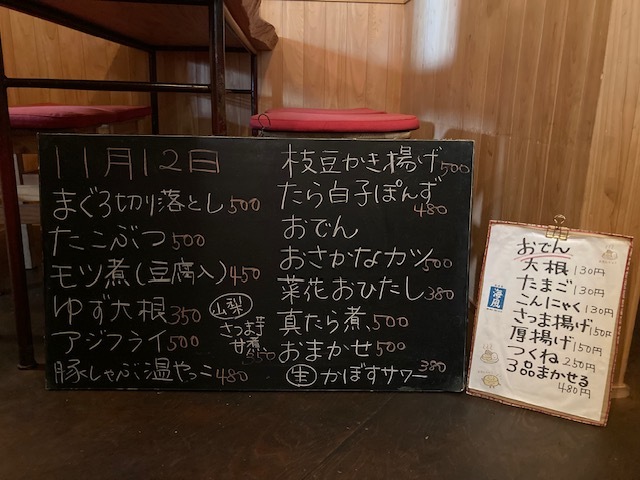 11月12日
まぐろ切り落とし 500
たこぶつ 500
モツ煮(豆腐入) 450
ゆず大根 350
アジフライ 500
豚しゃぶ温やっこ 480
山梨
さつま芋
甘煮 350
枝豆かき揚げ 500
たら白子ぽんず
480
おでん
おさかなカツ 500
菜花おひたし 380
真たら煮 500
おまかせ 500
生 かぼすサワー 380
おでん
大根 130円
たまご 130円
こんにゃく 130円
さつま揚げ 150円
厚揚げ 150円
つくね 250円
3品まかせる
480円